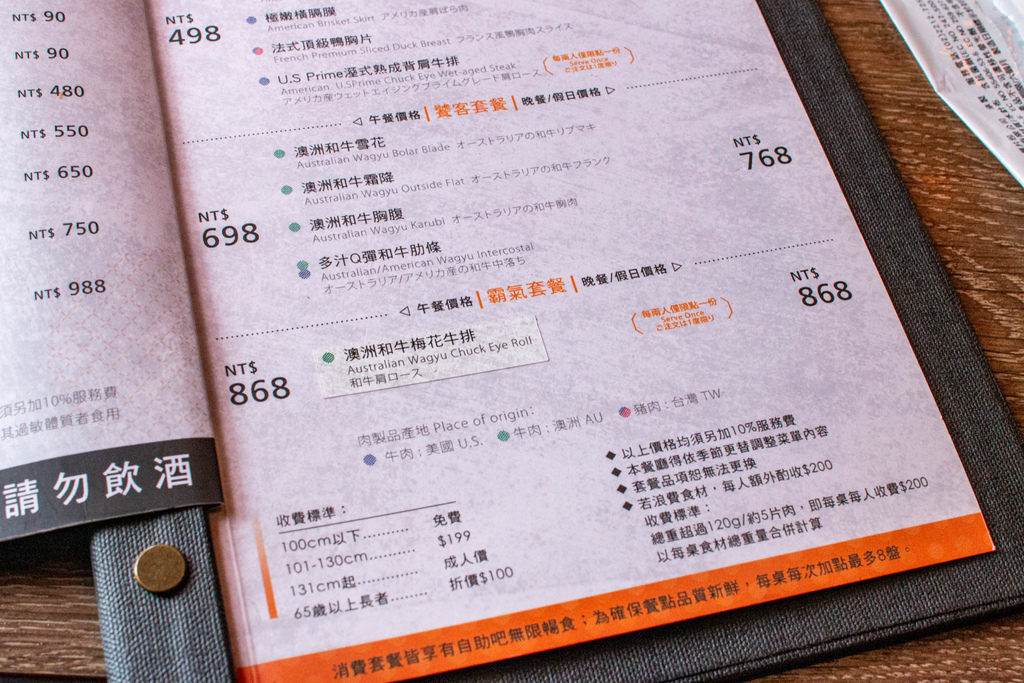 NT$ 90
NT$ 90
NT$ 480
NT$ 550
NT$ 650
NT$ 750
NT$ 988
須另加10%服務費
其過敏體質者食用
請勿飲酒
NT$
498
極嫩橫膈膜
American Brisket Skirt アメリカ産肩ばら肉
法式頂級鴨胸片
French Premium Sliced Duck Breast フランス産鴨胸肉スライス
U.S Prime溼式熟成背肩牛排
American U.SPrime Chuck Eye Wet-aged Steak
アメリカ産ウェットエイジングプライムグレード肩ロース
每兩人僅限點一份
Serve Once
ご注文は1度限り
◁ 午餐價格 | 饕客套餐 | 晚餐/假日價格 ▷
NT$
698
澳洲和牛雪花
Australian Wagyu Bolar Blade オーストラリアの和牛リブマキ
澳洲和牛霜降
Australian Wagyu Outside Flat オーストラリアの和牛フランク
澳洲和牛胸腹
Australian Wagyu Karubi オーストラリアの和牛胸肉
多汁Q彈和牛肋條
Australian/American Wagyu Intercostal
オーストラリア/アメリカ産の和牛中落ち
NT$
768
◁ 午餐價格 | 霸氣套餐 | 晚餐/假日價格 ▷
NT$
868
澳洲和牛梅花牛排
Australian Wagyu Chuck Eye Roll
和牛肩ロース
每兩人僅限點一份
Serve Once
ご注文は1度限り
NT$
868
肉製品產地 Place of origin:
牛肉 : 美國 U.S. 牛肉 : 澳洲 AU 豬肉 : 台灣 TW
◆ 以上價格均須另加10%服務費
◆ 本餐廳得依季節更替調整菜單內容
◆ 套餐品項恕無法更換
◆ 若浪費食材，每人額外酌收$200
收費標準：
總重超過120g/約5片肉，即每桌每人收費$200
以每桌食材總重量合併計算
收費標準：
100cm以下.......... 免費
101-130cm.......... $199
131cm起............. 成人價
65歲以上長者........ 折價$100
消費套餐皆享有自助吧無限暢食；為確保餐點品質新鮮，每桌每次加點最多8盤。